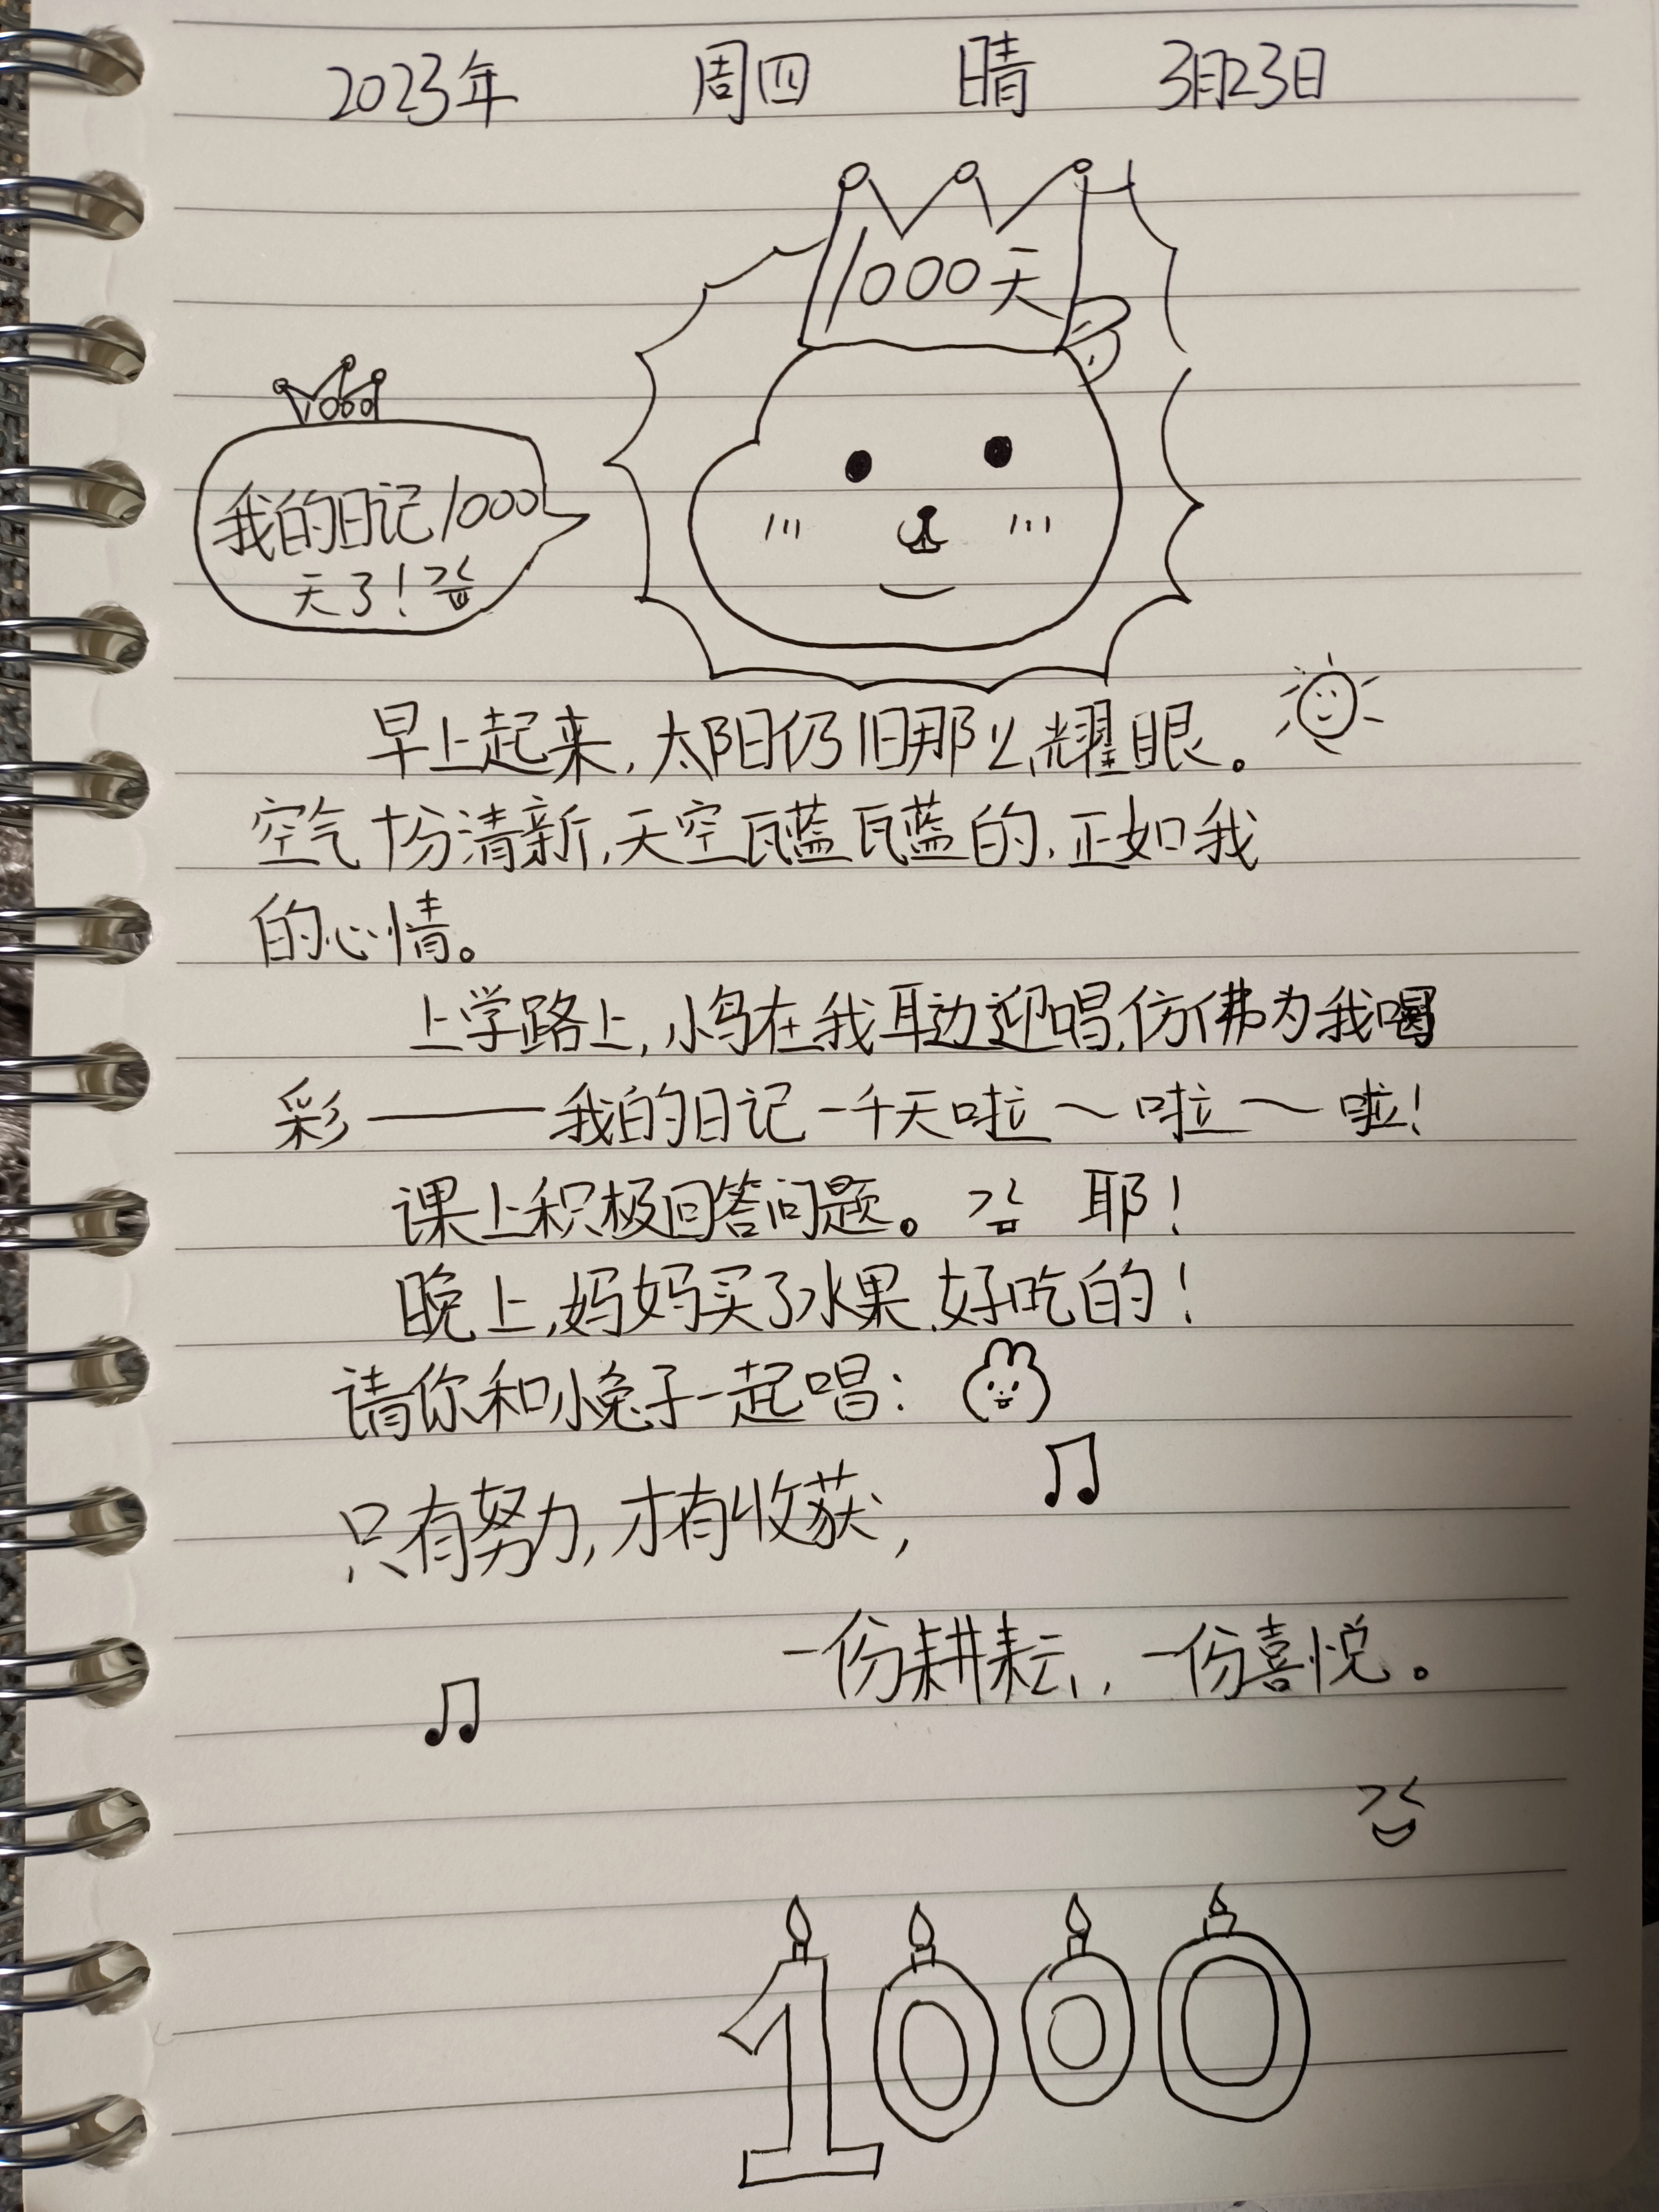 2023年 周四 晴 3月23日
1000天
1000
我的日记1000
天了!
早上起来,太阳仍旧那么耀眼。
空气十分清新,天空瓦蓝瓦蓝的,正如我
的心情。
上学路上,小鸟在我耳边迎唱,仿佛为我喝
彩——我的日记一千天啦~啦~啦!
课上积极回答问题。 耶!
晚上,妈妈买了水果,好吃的!
请你和小兔子一起唱:
只有努力,才有收获,
一份耕耘,,一份喜悦。
1000